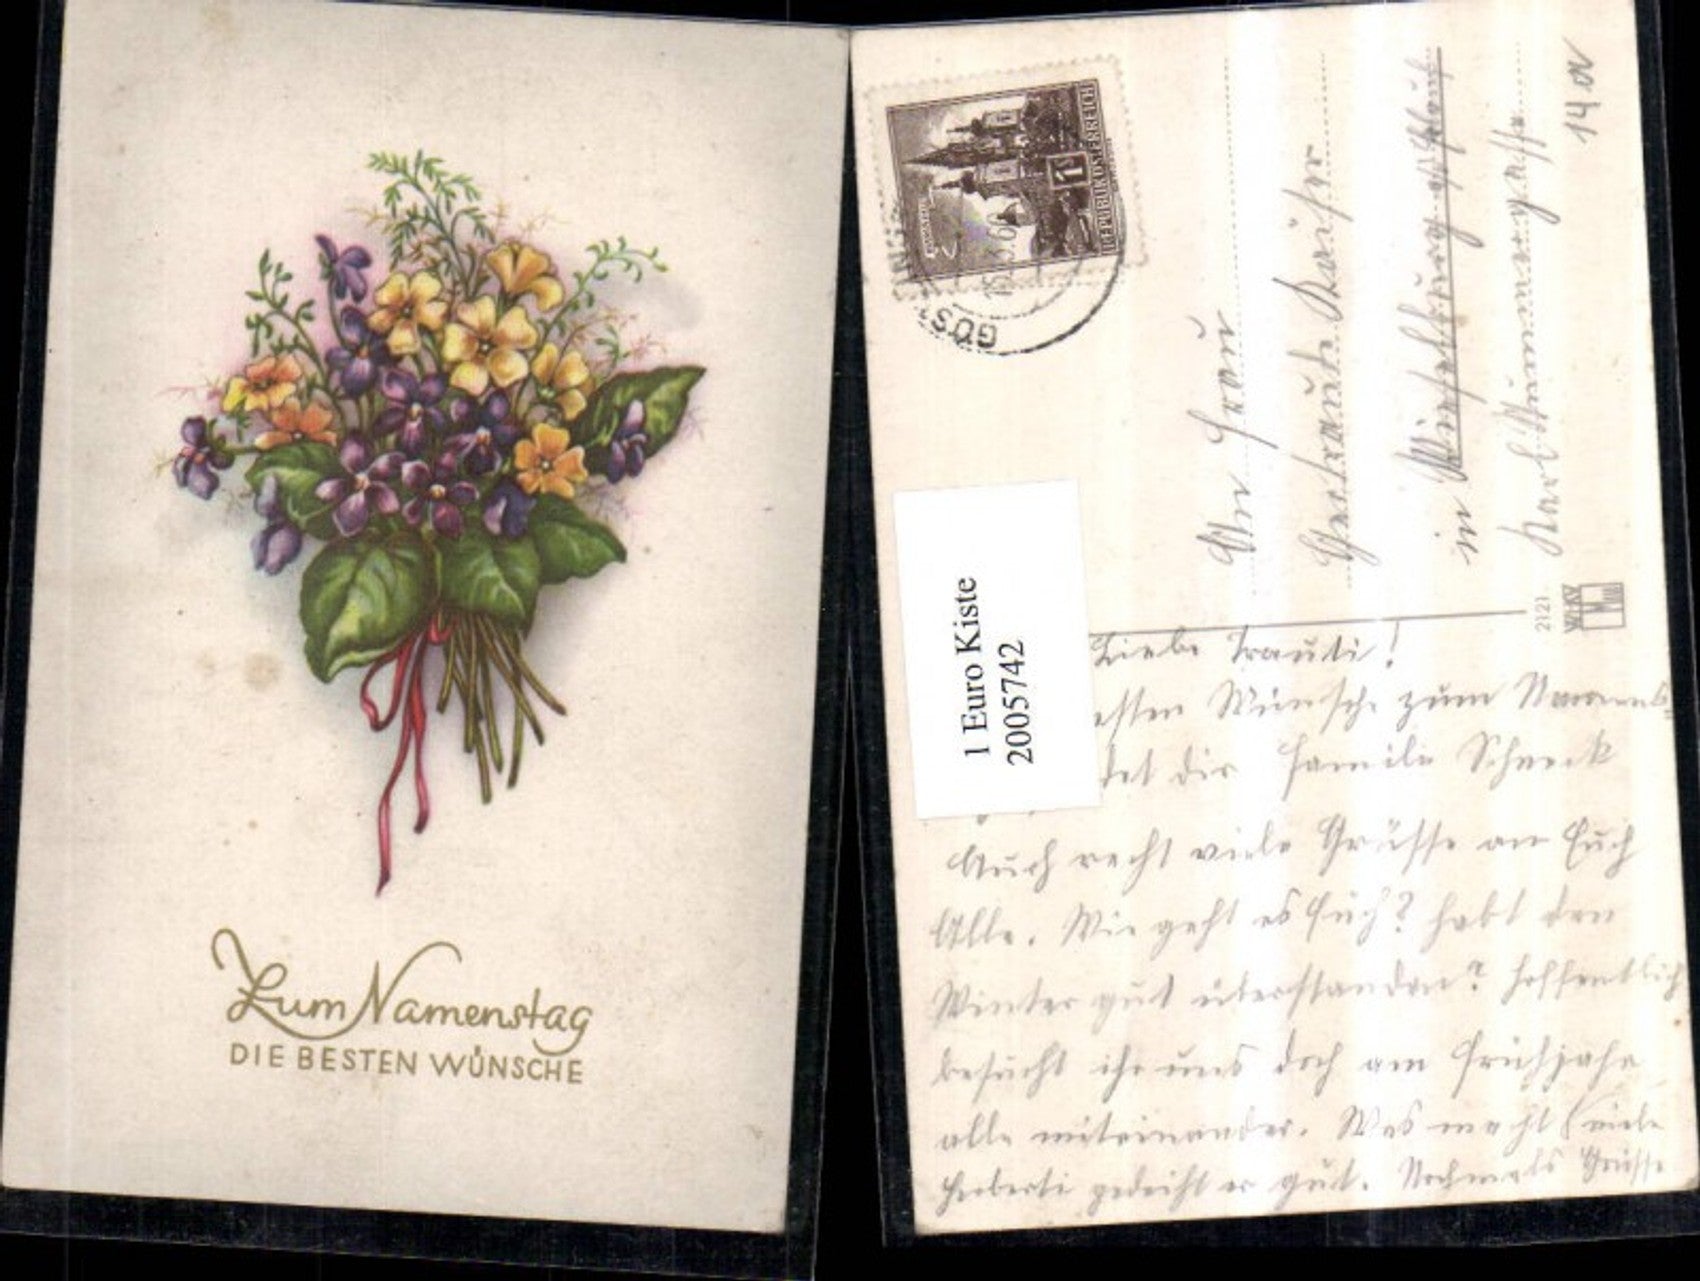 Zum Namenstag
DIE BESTEN WÜNSCHE
REPUBLIK ÖSTERREICH
1 S
GÜS
ING
1 Euro Kiste
2005742
An Frau
Gertraute Kaiser
in
14a
2121
Liebe Trauti!
esten Wünsche zum Namens-
det dir Familie Schneck
Auch recht viele Grüsse an Euch
Alle. Wie geht es Euch? habt den
Winter gut überstanden? hoffentlich
besucht ihr uns doch am Frühjahr
alle miteinander. Was macht
Herberti gedeiht er gut. Nochmals Grüsse
viele